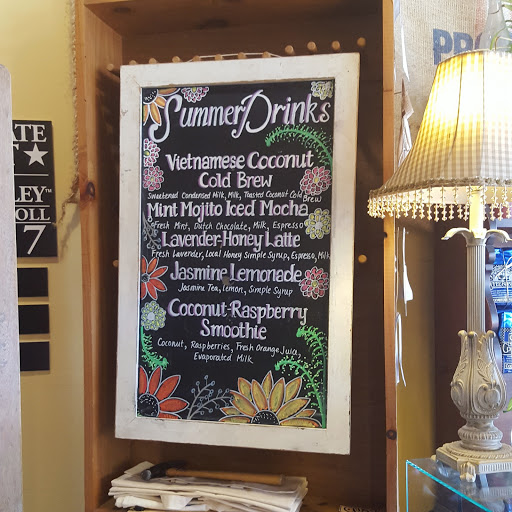 Summer Drinks
Vietnamese Coconut
Cold Brew
Sweetened Condensed Milk, Milk, Toasted Coconut Cold Brew
Mint Mojito Iced Mocha
Fresh Mint, Dutch Chocolate, Milk, Espresso
Lavender-Honey Latte
Fresh Lavender, Local Honey Simple Syrup, Espresso, Milk
Jasmine Lemonade
Jasmine Tea, Lemon, Simple Syrup
Coconut-Raspberry
Smoothie
Coconut, Raspberries, Fresh Orange Juice,
Evaporated Milk
ATE
LEY™
OLL
7
PRO